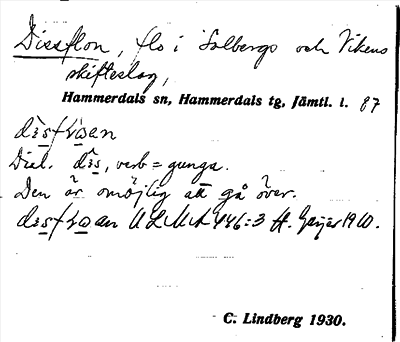 Dissflon, flo i Solbergs och Vikens
skifteslag,
Hammerdals sn, Hammerdals tg, Jämtl. l. 87
Dial. verb = gunga.
Den är omöjlig att gå över.
ULMA 446:3 H. Geijer 1910.
C. Lindberg 1930.